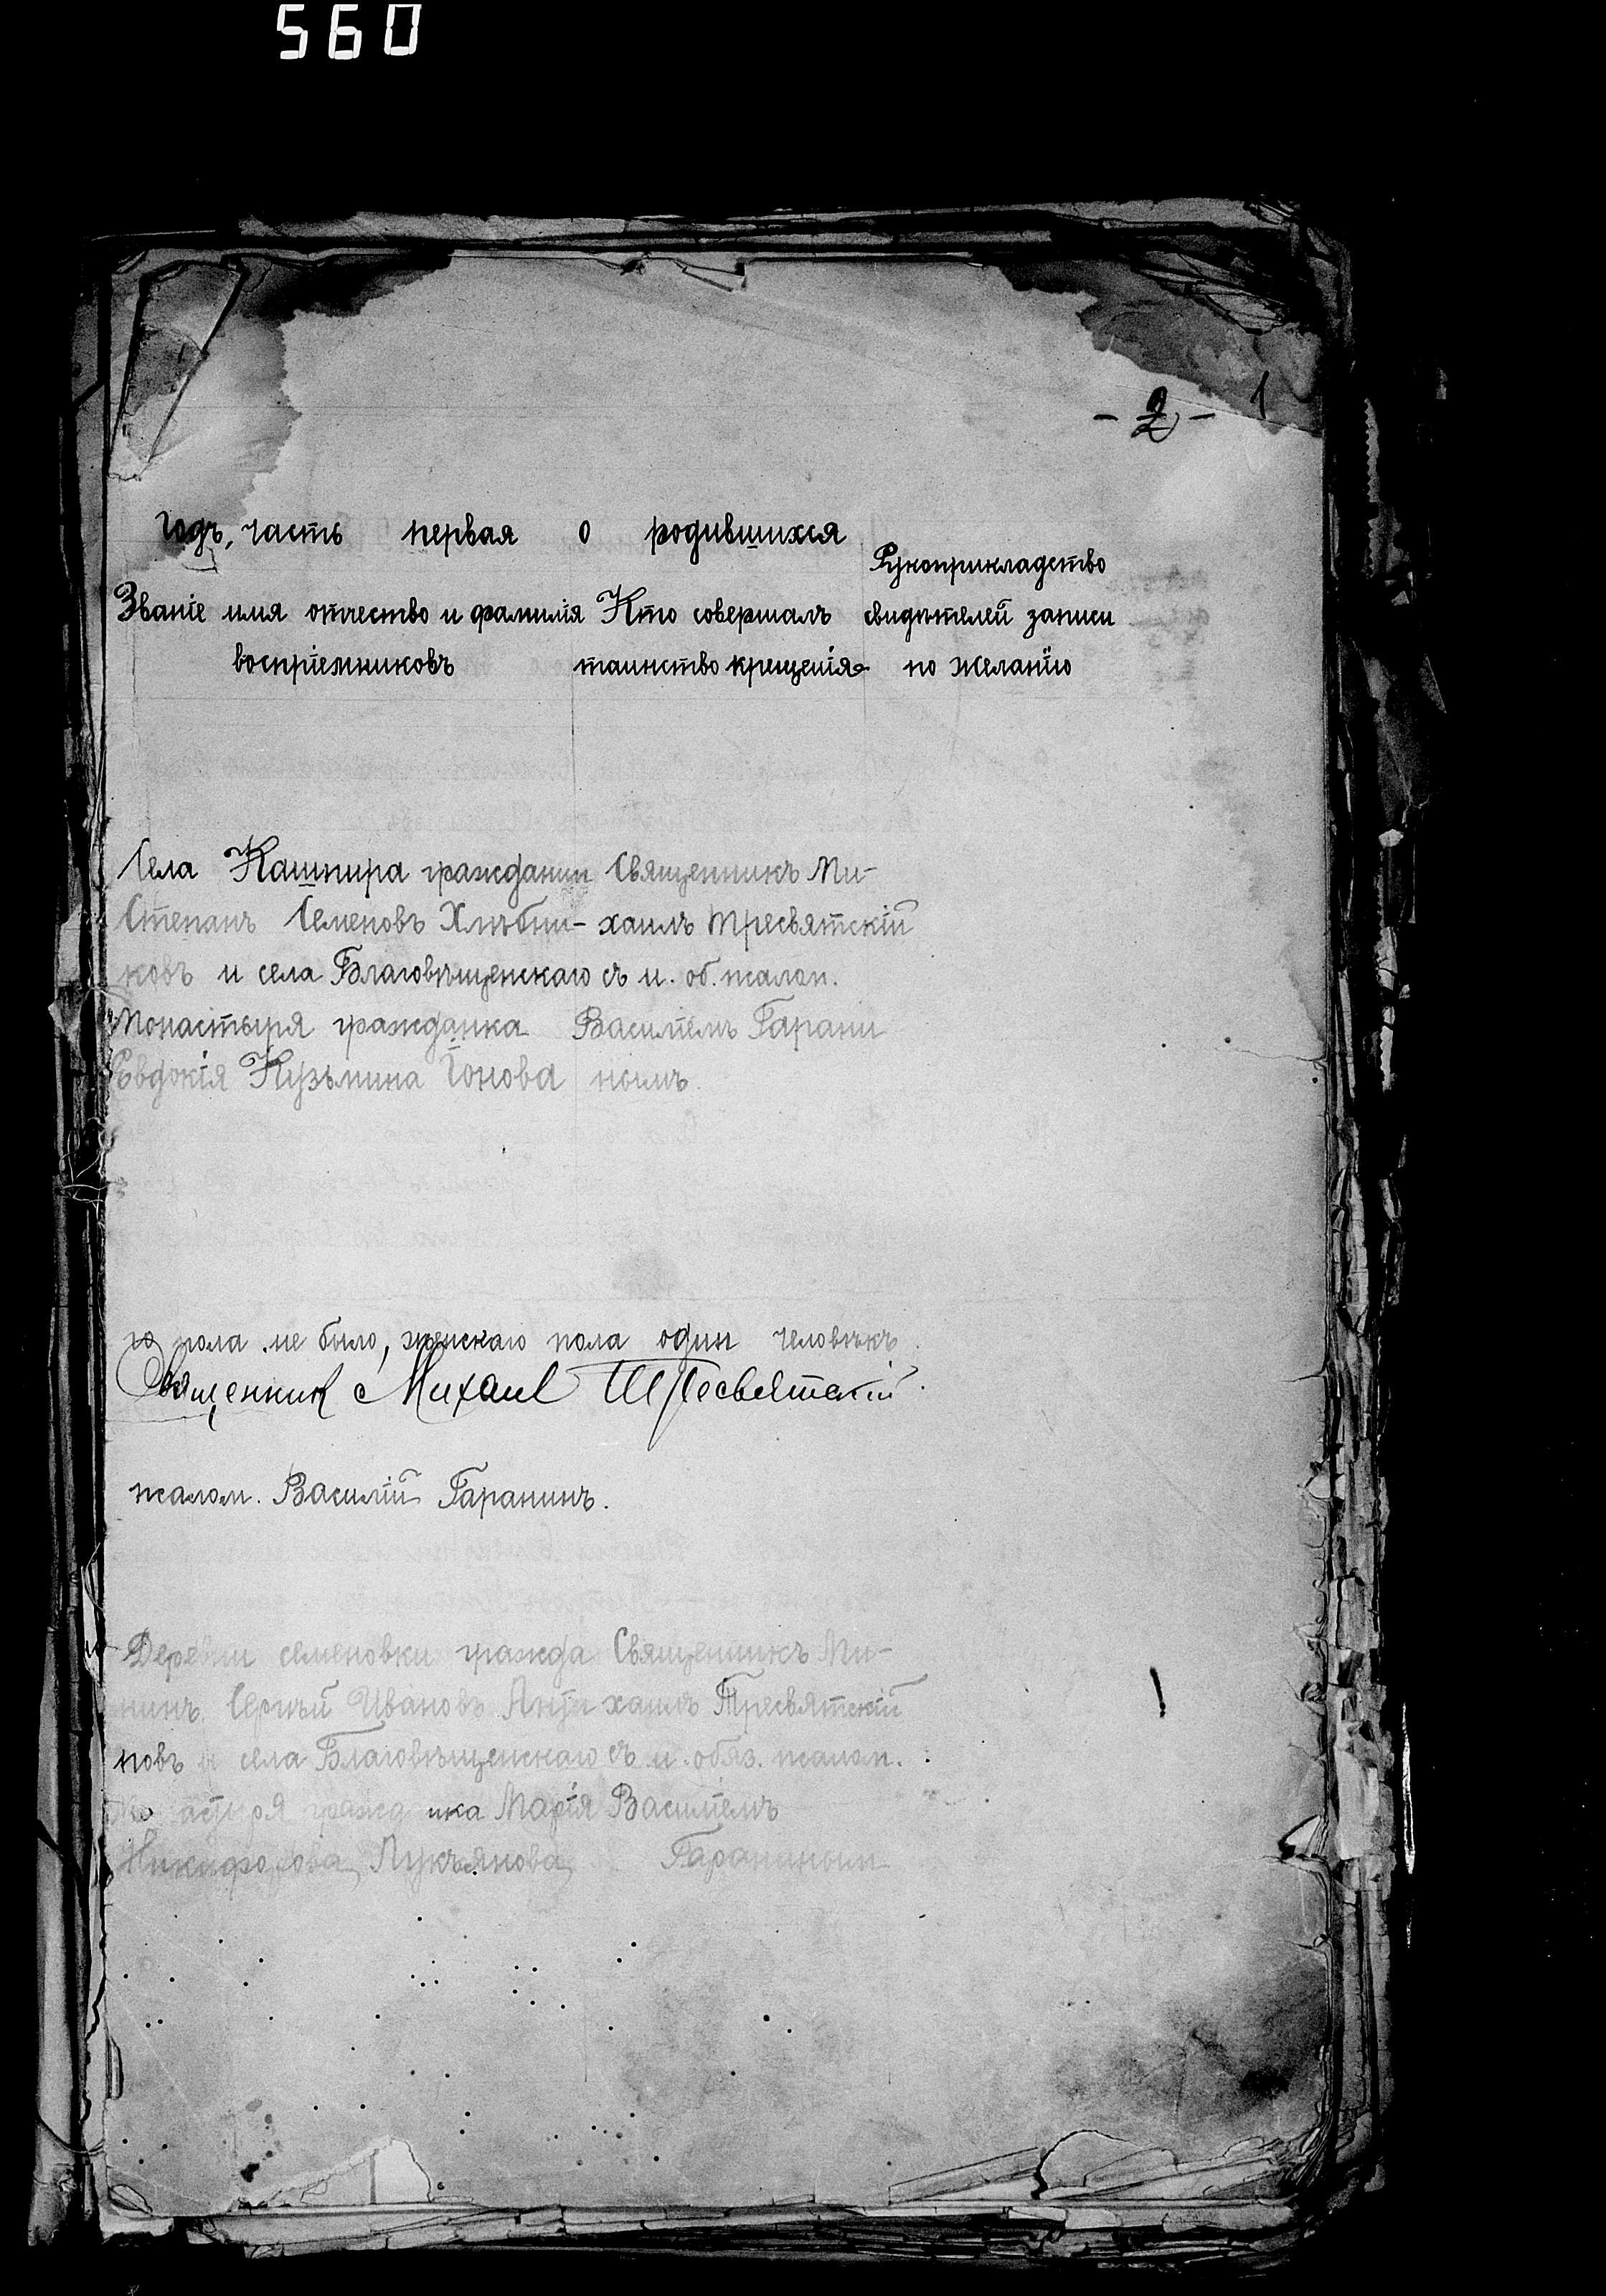 560
- 2 - 1
годъ, часть первая о родившихся
Званіе имя отчество и фамилія воспріемниковъ
Кто совершалъ таинство крещенія
Рукоприкладство свидѣтелей записи по желанію
Села Кашпира гражданин
Степанъ Семеновъ Хлѣбни-
ковъ и села Благовѣщенскаго
Монастыря гражданка
Евдокія Кузьмина Іонова
Священникъ Ми-
хаилъ Тресвятскій
съ и. об. псалом.
Василіемъ Гарани
номъ.
го пола не было, женскаго пола один человѣкъ.
Священник Михаил Тресвятский
псалом. Василій Гаранинъ.
Деревни семеновки гражда
нинъ Сергѣй Ивановъ Анти
повъ и села Благовѣщенскаго
Марія
Никифорова Лукьянова
Священникъ Ми-
хаилъ Тресвятскій
съ и. обяз. псалом.
Василіемъ
Гаранином